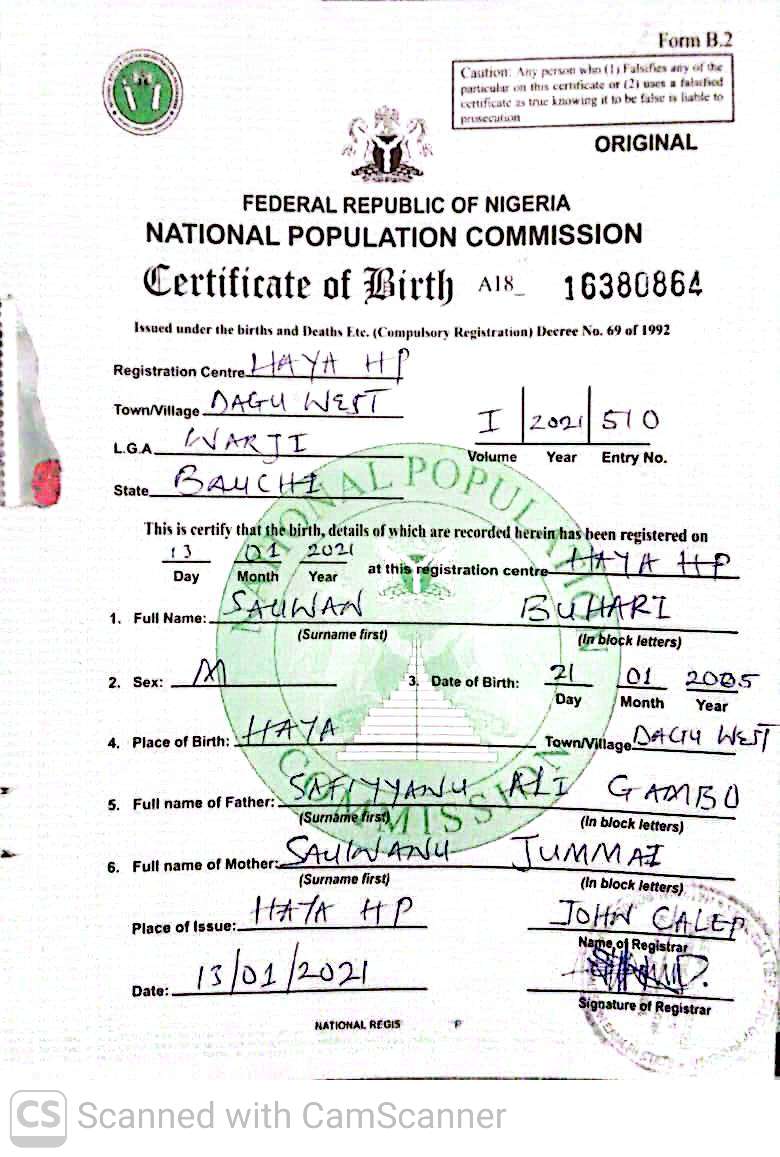 Form B.2
Caution: Any person who (1) Falsifies any of the
particular on this certificate or (2) uses a falsified
certificate as true knowing it to be false is liable to
prosecution
ORIGINAL
FEDERAL REPUBLIC OF NIGERIA
NATIONAL POPULATION COMMISSION
Certificate of Birth A18_ 16380864
Issued under the births and Deaths Etc. (Compulsory Registration) Decree No. 69 of 1992
Registration Centre HAYA HP
Town/Village DAGU WEST
I 2021 510
L.G.A. WARJI
Volume Year Entry No.
State BAUCHI
NATIONAL POPULATION COMMISSION
This is certify that the birth, details of which are recorded herein has been registered on
13 01 2021 at this registration centre HAYA HP
Day Month Year
1. Full Name: SAUWAN BUHARI
(Surname first) (In block letters)
2. Sex: M 3. Date of Birth: 21 01 2005
Day Month Year
4. Place of Birth: HAYA Town/Village DAGU WEST
5. Full name of Father: SAFIYYANU ALI GAMBO
(Surname first) (In block letters)
6. Full name of Mother: SAUWANU JUMMAI
(Surname first) (In block letters)
Place of Issue: HAYA HP JOHN CALEP
Name of Registrar
Date: 13/01/2021
Signature of Registrar
NATIONAL REGIS P
CS Scanned with CamScanner